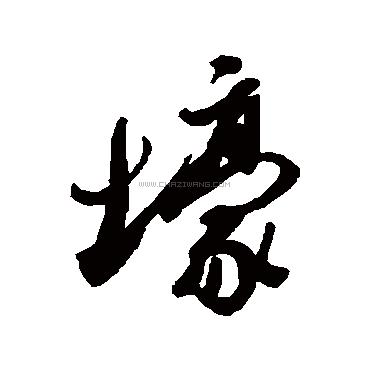 壕
WWW.CHAZIWANG.COM